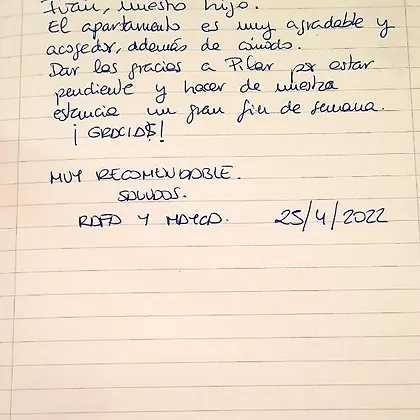 Juan, nuestro hijo.
El apartamento es muy agradable y
acogedor, además de cómodo.
Dar las gracias a Pilar por estar
pendiente y hacer de nuestra
estancia un gran fin de semana.
¡GRACIAS!
MUY RECOMENDABLE.
SALUDOS.
RAFA Y MAYCA. 25/4/2022